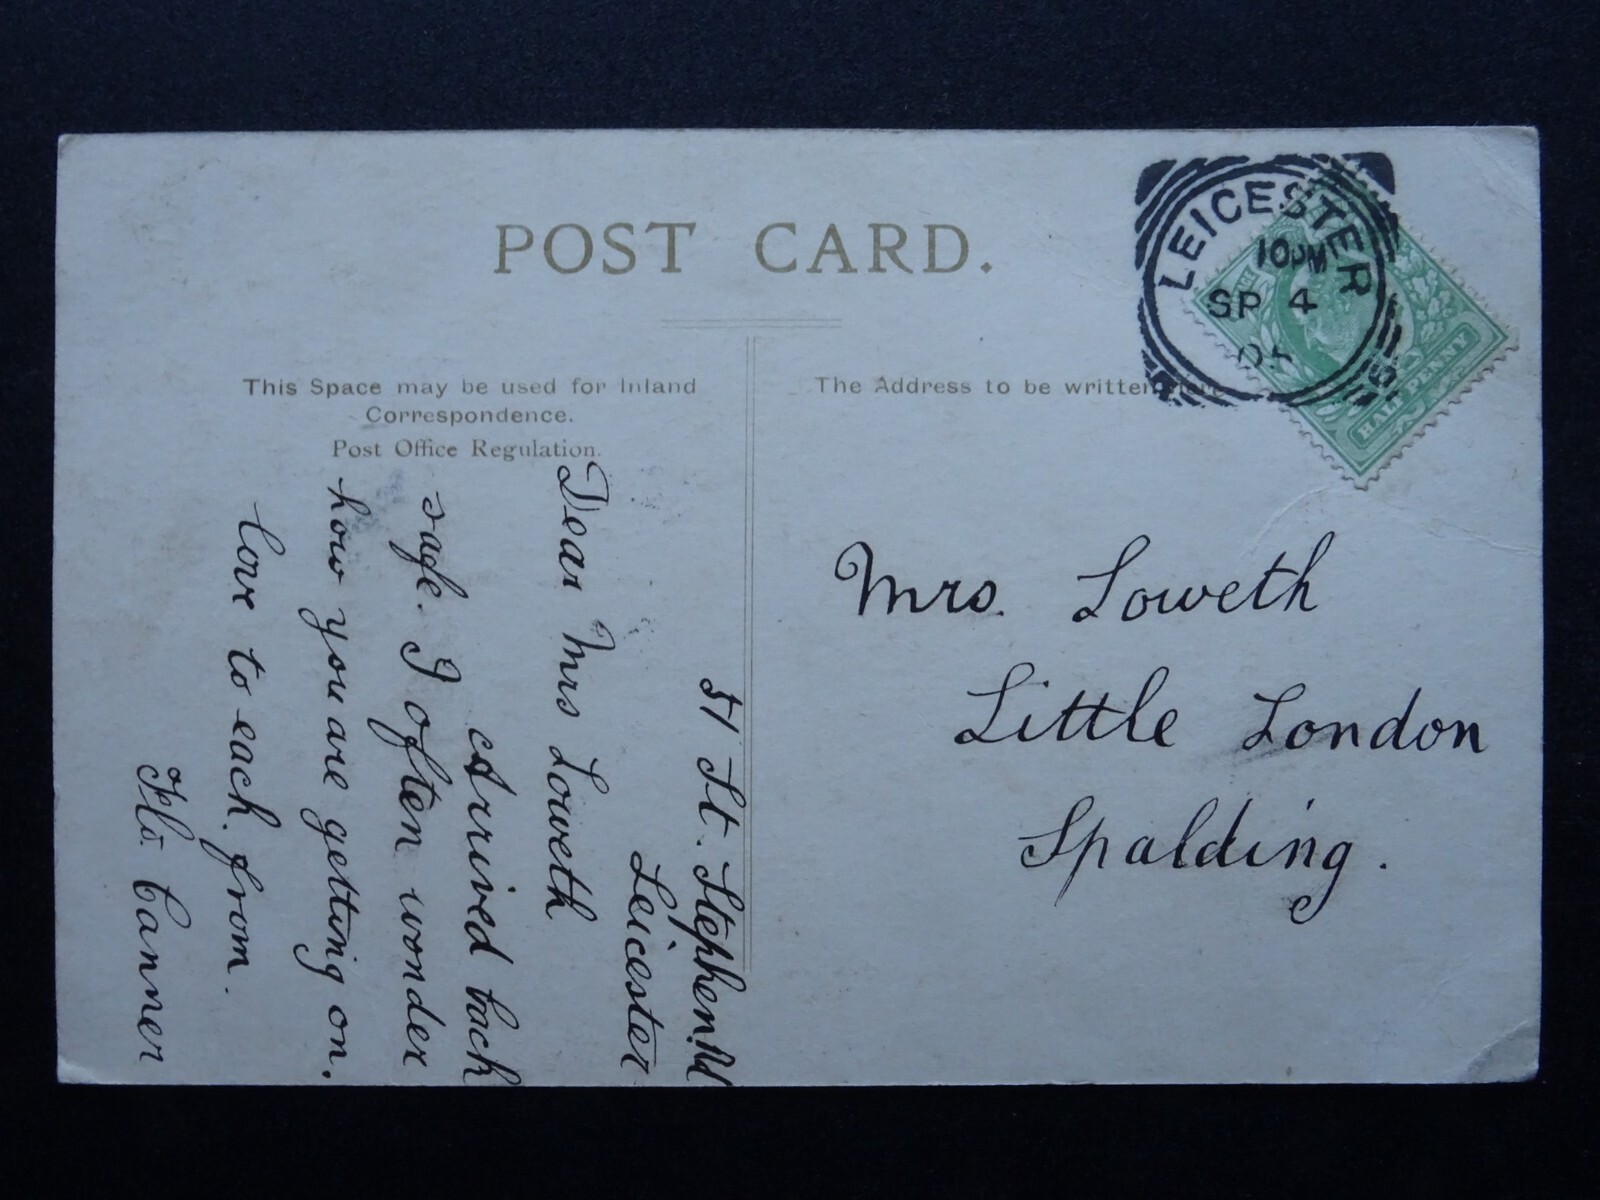 POST CARD.
This Space may be used for Inland
Correspondence.
Post Office Regulation.
The Address to be written
LEICESTER
10PM
SP 4
05
HALF PENNY
51 St. Stephen. Rd
Leicester
Dear Mrs Loweth
Arrived back
safe. I often wonder
how you are getting on.
love to each. from.
Flo. Canner
Mrs. Loweth
Little London
Spalding.